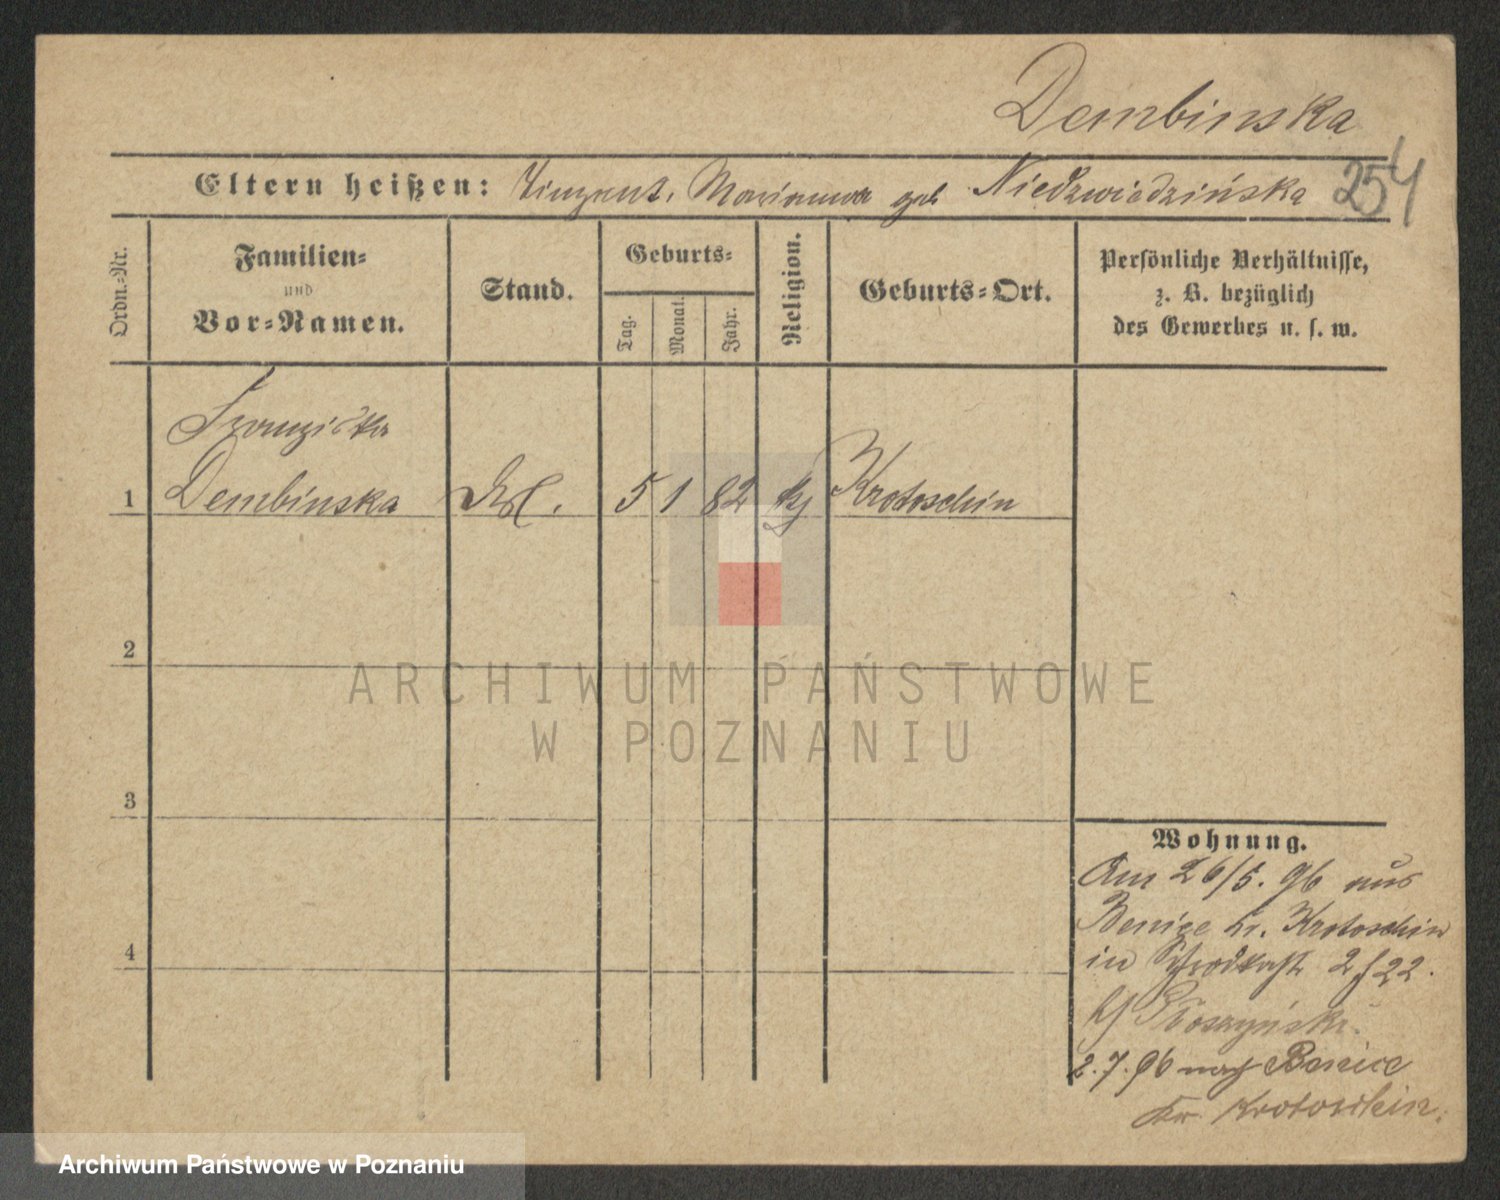 Dembinska
Eltern heißen: Vinzent, Marianna geb Niedzwiedzińska 254
Ordn.=Nr.
Familien=
und
Vor=Namen.
Stand.
Geburts=
Tag.
Monat.
Jahr.
Religion.
Geburts=Ort.
Persönliche Verhältnisse,
z. B. bezüglich
des Gewerbes u. s. w.
Franziska
1 Dembinska 5 1 82 Krotoschin
2
3
4
Wohnung.
Am 26/5. 96 aus
Benice Kr. Krotoschin
in
2.7.96 nach Benice
Kr. Krotoschin.
ARCHIWUM PAŃSTWOWE
W POZNANIU
Archiwum Państwowe w Poznaniu